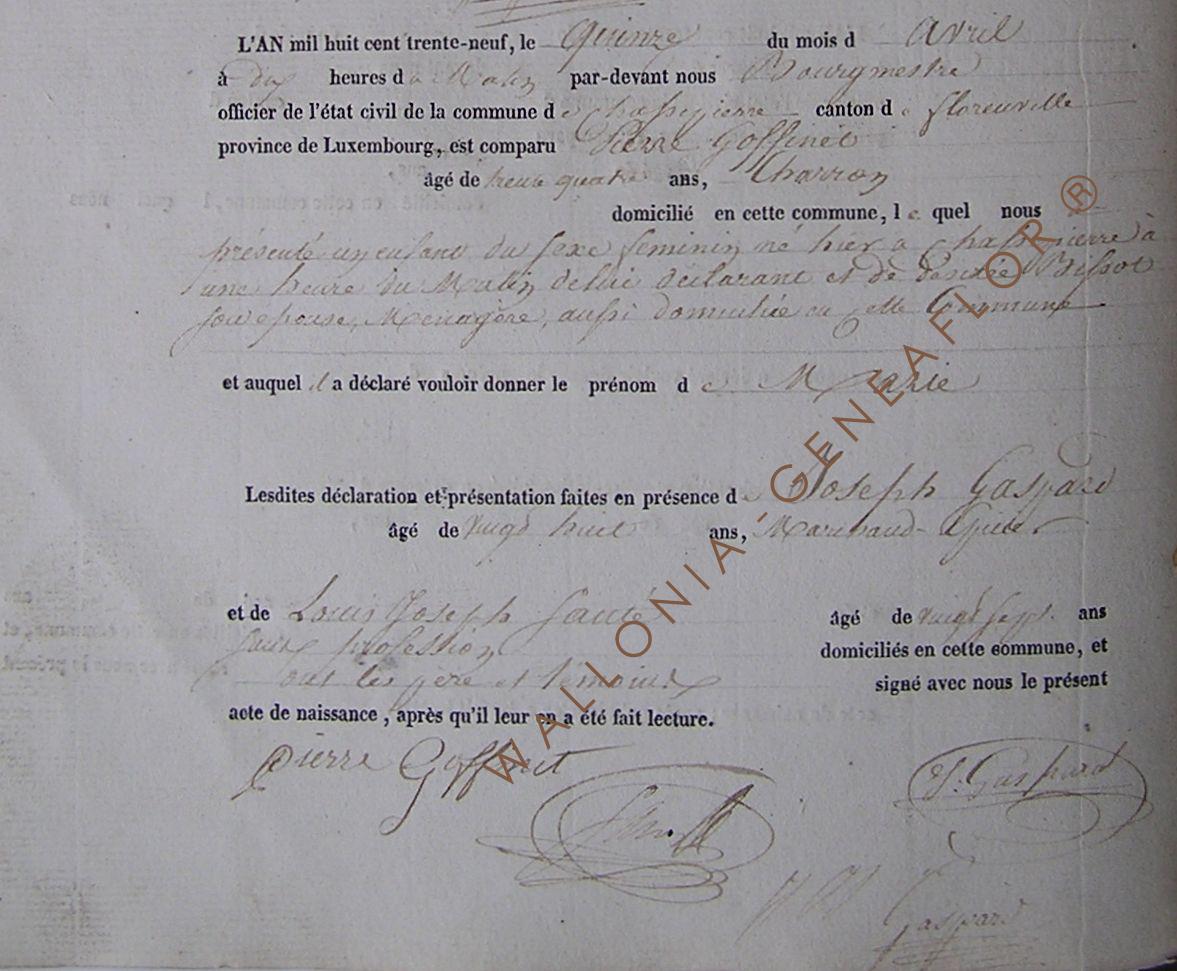 L'AN mil huit cent trente-neuf, le quinze du mois d avril
à dix heures du Matin par-devant nous Bourgmestre
officier de l'état civil de la commune de Chassepierre canton de florenville
province de Luxembourg, est comparu Pierre Goffinet
âgé de trente quatre ans, Charron
domicilié en cette commune, le quel nous
présenté un enfant du sexe feminin né hier a Chassepierre à
une heure du Matin de lui déclarant et de Désiré Bissot
son epouse, Menagère, aussi domiciliée en cette Commune
et auquel il a déclaré vouloir donner le prénom de Marie
Lesdites déclaration et présentation faites en présence de Joseph Gaspard
âgé de vingt huit ans, Marchand
et de Louis Joseph âgé de vingt sept ans
sans profession domiciliés en cette commune, et
ont les père et témoins signé avec nous le présent
acte de naissance, après qu'il leur en a été fait lecture.
Pierre Goffinet
J. Gaspard
Gaspard
WALLONIA-GENEAFLOR ®